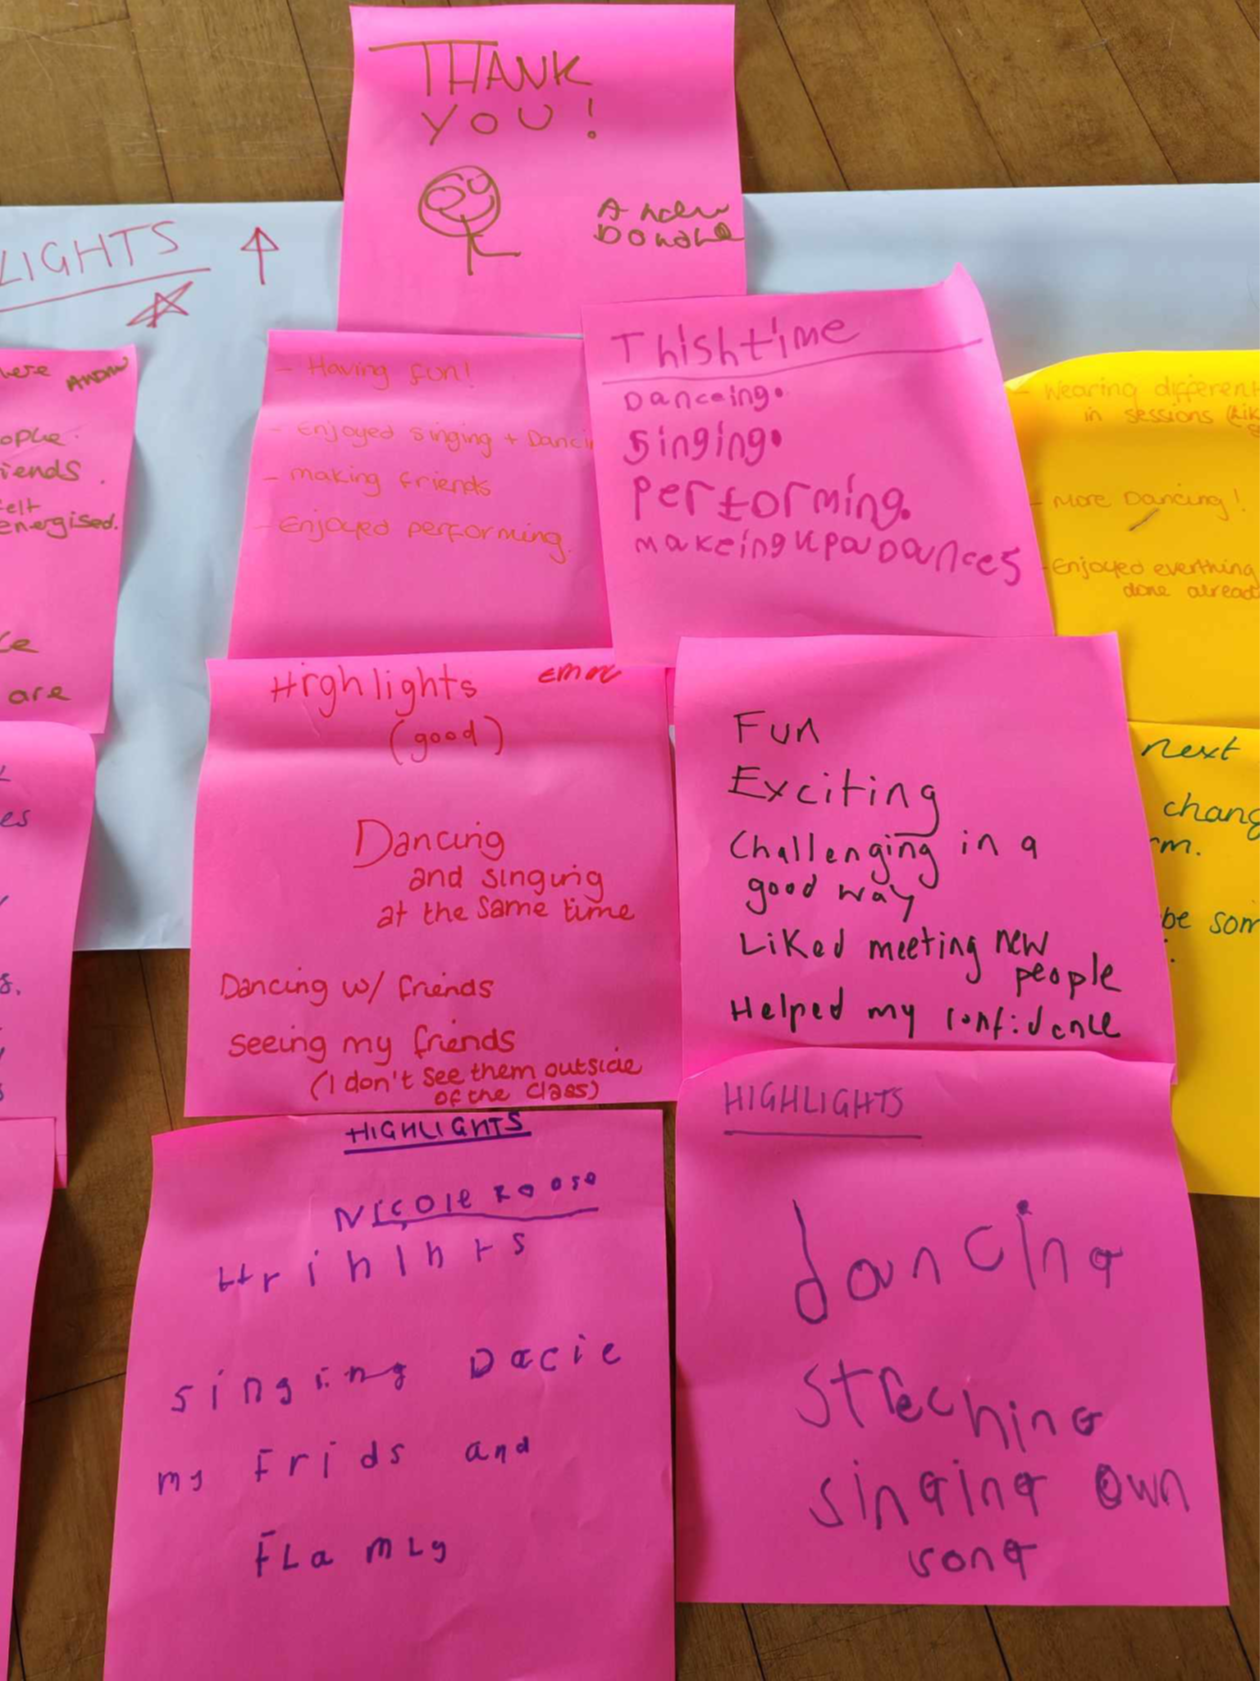 THANK
YOU!
LIGHTS
- Having fun!
- Enjoyed singing + Danci
- making friends
- Enjoyed performing.
Thishtime
Danceing.
singing.
performing.
makeing upa Dances
here
ople.
iends.
elt
energised.
are
- Wearing differen
in sessions
- More Dancing!
- Enjoyed everthing
done alread
Highlights
(good)
Dancing
and singing
at the same time
Dancing w/ friends
seeing my friends
(I don't see them outside
of the class)
Fun
Exciting
Challenging in a
good way
Liked meeting new
people
Helped my confidence
next
chang
rm.
be som
es
HIGHLIGHTS
Nicole
Hrihlhts
singing Dacie
my Frids and
FLamLy
HIGHLIGHTS
dancing
streching
singing own
song